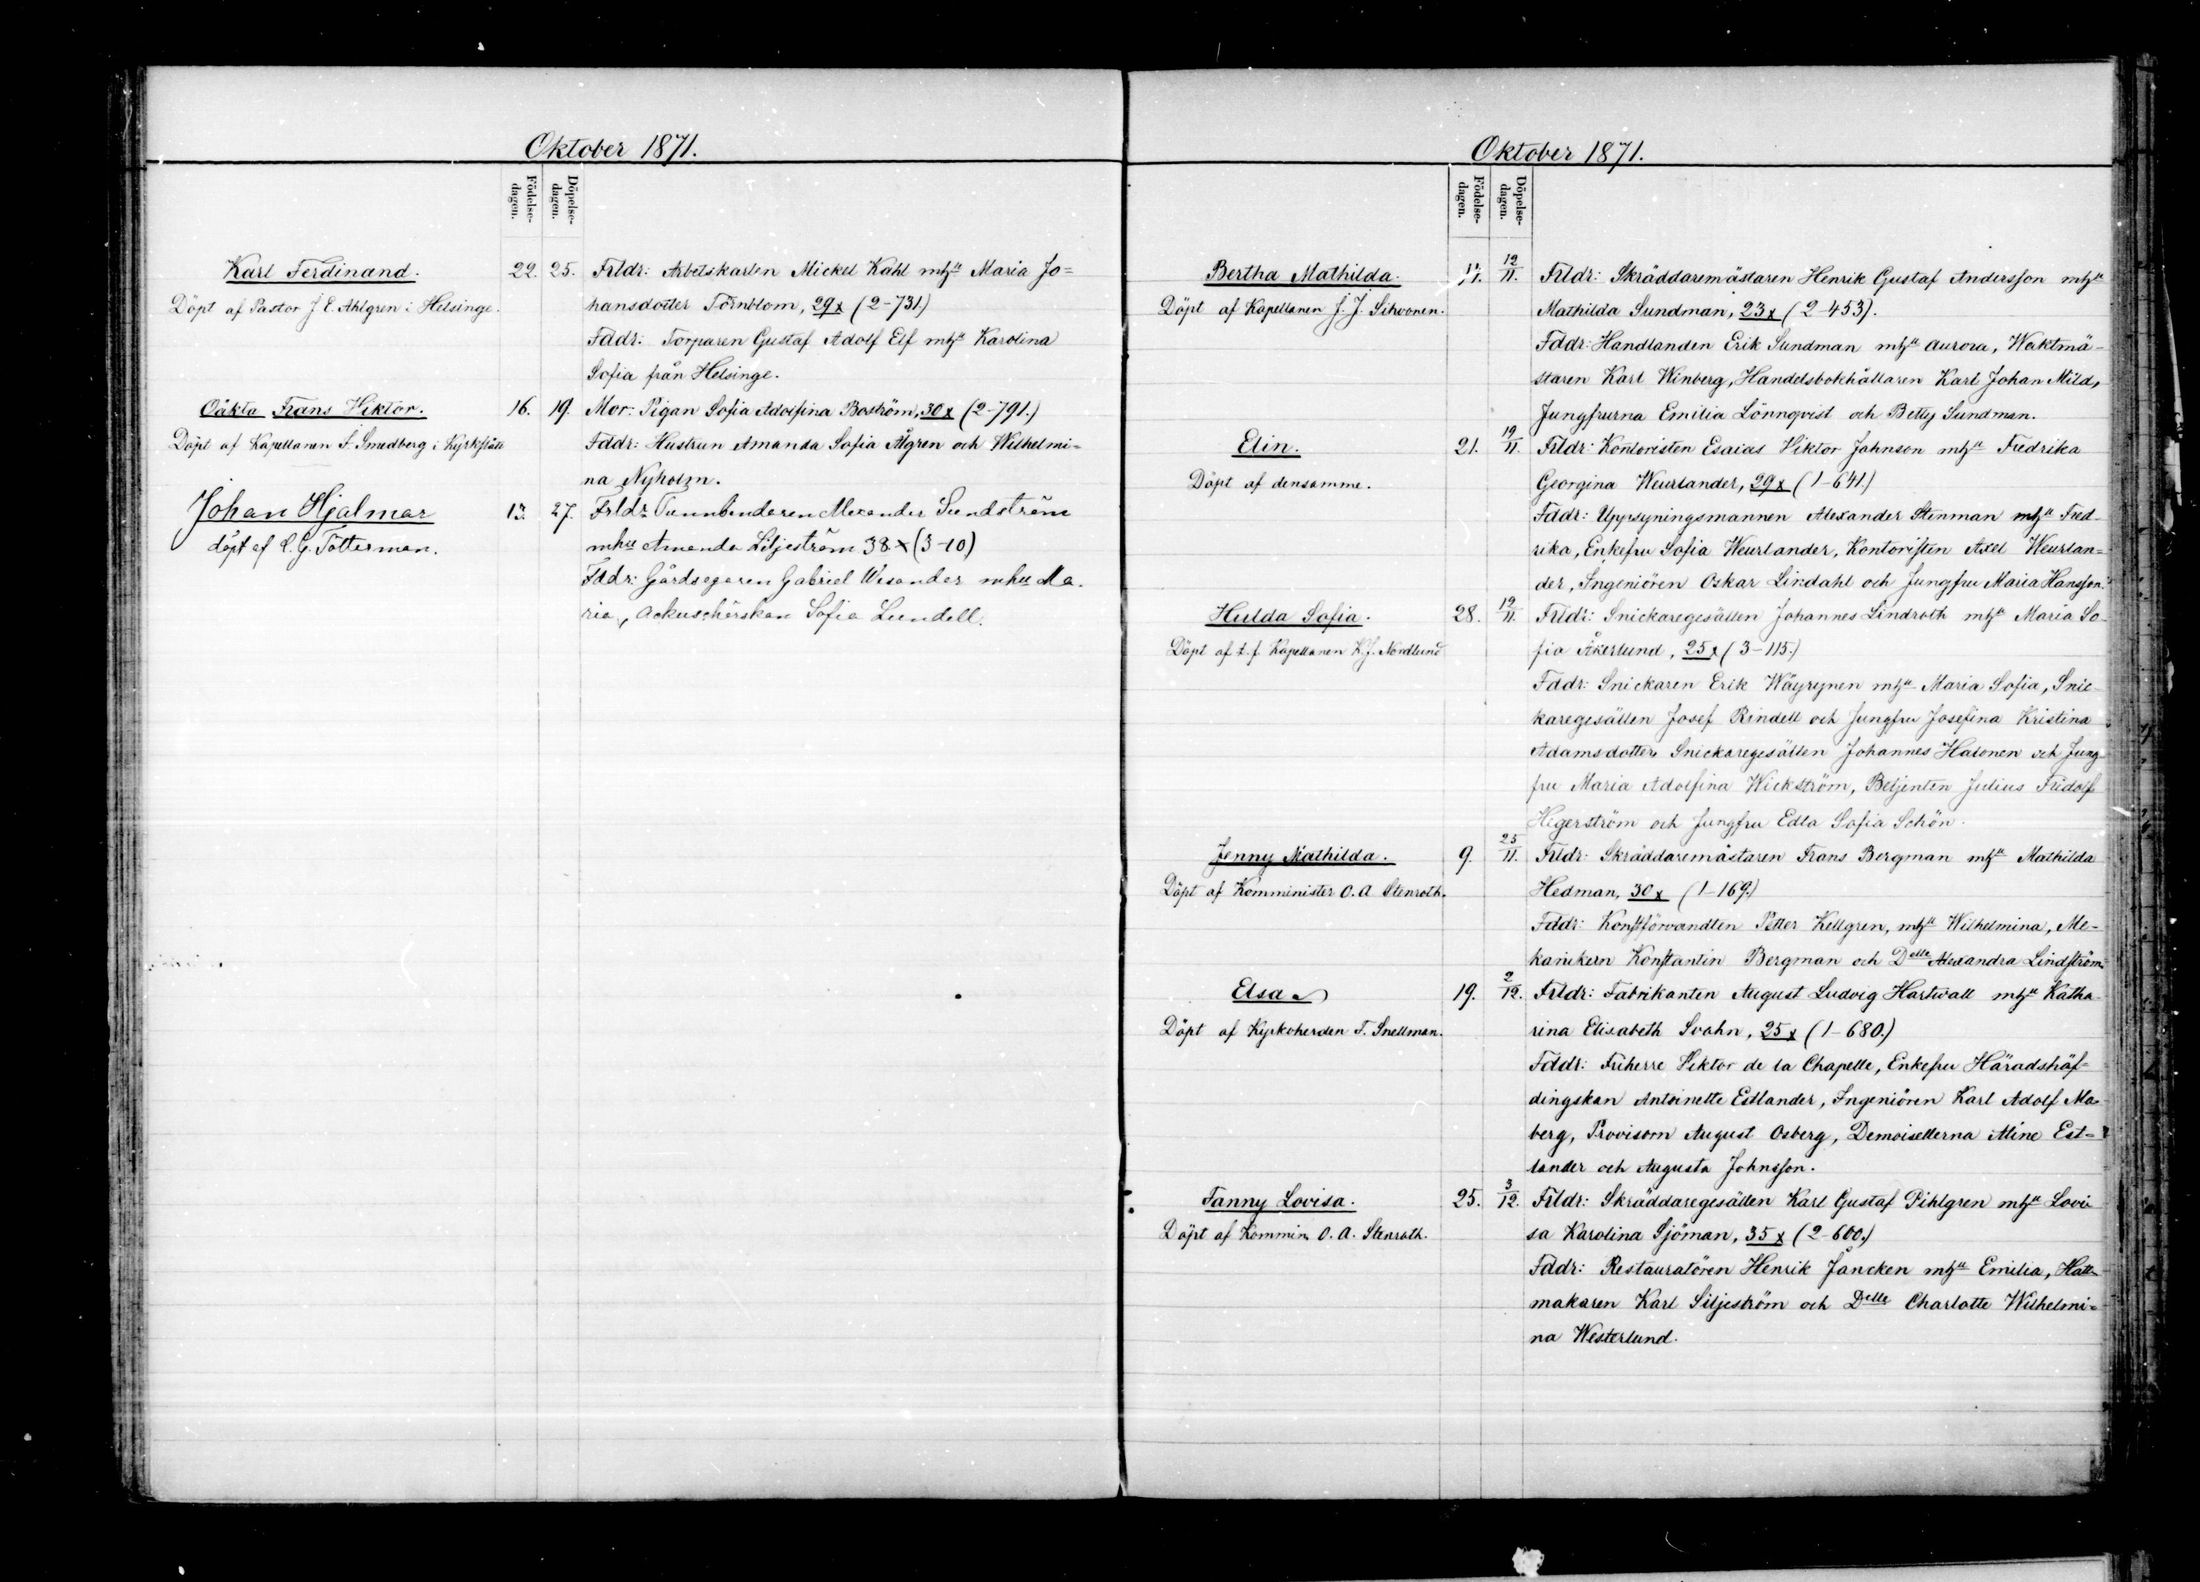 Oktober 1871.
Födelse-
dagen.
Döpelse-
dagen.
Karl Ferdinand.
Döpt af Pastor J. E. Ahlgren i Helsinge.
22. 25. Frldr: Arbetskarlen Mickel Kahl mhu Maria Jo=
hansdotter Törnblom, 29 x (2-731.)
Fddr: Torparen Gustaf Adolf Elf mhu Karolina
Sofia från Helsinge.
Oäkta Frans Viktor.
Döpt af Kapellanen F. Smedberg i Kyrkslätt
16. 19. Mor: Pigan Sofia Adolfina Boström, 30 x (2-791.)
Fddr: Hustrun Amanda Sofia Ålgren och Wilhelmi-
na Nyholm.
Johan Hjalmar
döpt af L. G. Totterman.
13. 27. Frldr Tunnbindaren Alexander Sundström
mhu Amanda Liljeström 38 x (3-10)
Fddr: Gårdsegaren Gabriel Wesander mhu Ma-
ria, Ackuschörskan Sofia Lundell.
Oktober 1871.
Födelse-
dagen.
Döpelse-
dagen.
Bertha Mathilda.
Döpt af Kapellanen J. J. Sihvonen.
17. 12/11. Frldr: Skräddaremästaren Henrik Gustaf Andersson mhu
Mathilda Sundman, 23 x (2-453).
Fddr: Handlanden Erik Sundman mhu Aurora, Waktmä-
staren Karl Winberg, Handelsbokhållaren Karl Johan Mild,
Jungfrurna Emilia Lönnqvist och Betty Sundman.
Elin.
Döpt af densamme.
21. 19/11. Frldr: Kontoristen Esaias Viktor Johnson mhu Fredrika
Georgina Weurlander, 29 x (1-641.)
Fddr: Uppsyningsmannen Alexander Stenman mhu Fred-
rika, Enkefru Sofia Weurlander, Kontoristen Axel Weurlan=
der, Ingeniören Oskar Lindahl och Jungfru Maria Hansson.
Hulda Sofia.
Döpt af t. f. Kapellanen K. J. Nordlund
28. 19/11. Frldr: Snickaregesällen Johannes Lindroth mhu Maria So-
fia Åkerlund, 25 x (3-115.)
Fddr: Snickaren Erik Wäyrynen mhu Maria Sofia, Snic-
karegesällen Josef Rindell och Jungfru Josefina Kristina
Adamsdotter, Snickaregesällen Johannes Halonen och Jung-
fru Maria Adolfina Wickström, Betjenten Julius Fridolf
Hegerström och Jungfru Edla Sofia Schön.
Jenny Mathilda.
Döpt af Komminister O. A. Stenroth.
9. 25/11. Frldr: Skräddaremästaren Frans Bergman mhu Mathilda
Hedman, 30 x (1-169.)
Fddr: Konstförvandten Petter Kellgren, mhu Wilhelmina, Me-
kanikern Konstantin Bergman och Delle Alexandra Lindström.
Elsa
Döpt af Kyrkoherden F. Snellman.
19. 2/12. Frldr: Fabrikanten August Ludvig Hartwall mhu Katha-
rina Elisabeth Svahn, 25 x (1-680.)
Fddr: Friherre Viktor de la Chapelle, Enkefru Häradshäf=
dingskan Antoinette Estlander, Ingeniören Karl Adolf Mo-
berg, Provisorn August Osberg, Demoisellerna Aline Est=
lander och Augusta Johnsson.
Fanny Lovisa.
Döpt af Kommin. O. A. Stenroth.
25. 3/12. Frldr: Skräddaregesällen Karl Gustaf Pihlgren mhu Lovi
sa Karolina Sjöman, 35 x (2-600.)
Fddr: Restauratören Henrik Jäncken mhu Emilia, Hatt-
makaren Karl Siljeström och Delle Charlotte Wilhelmi=
na Westerlund.